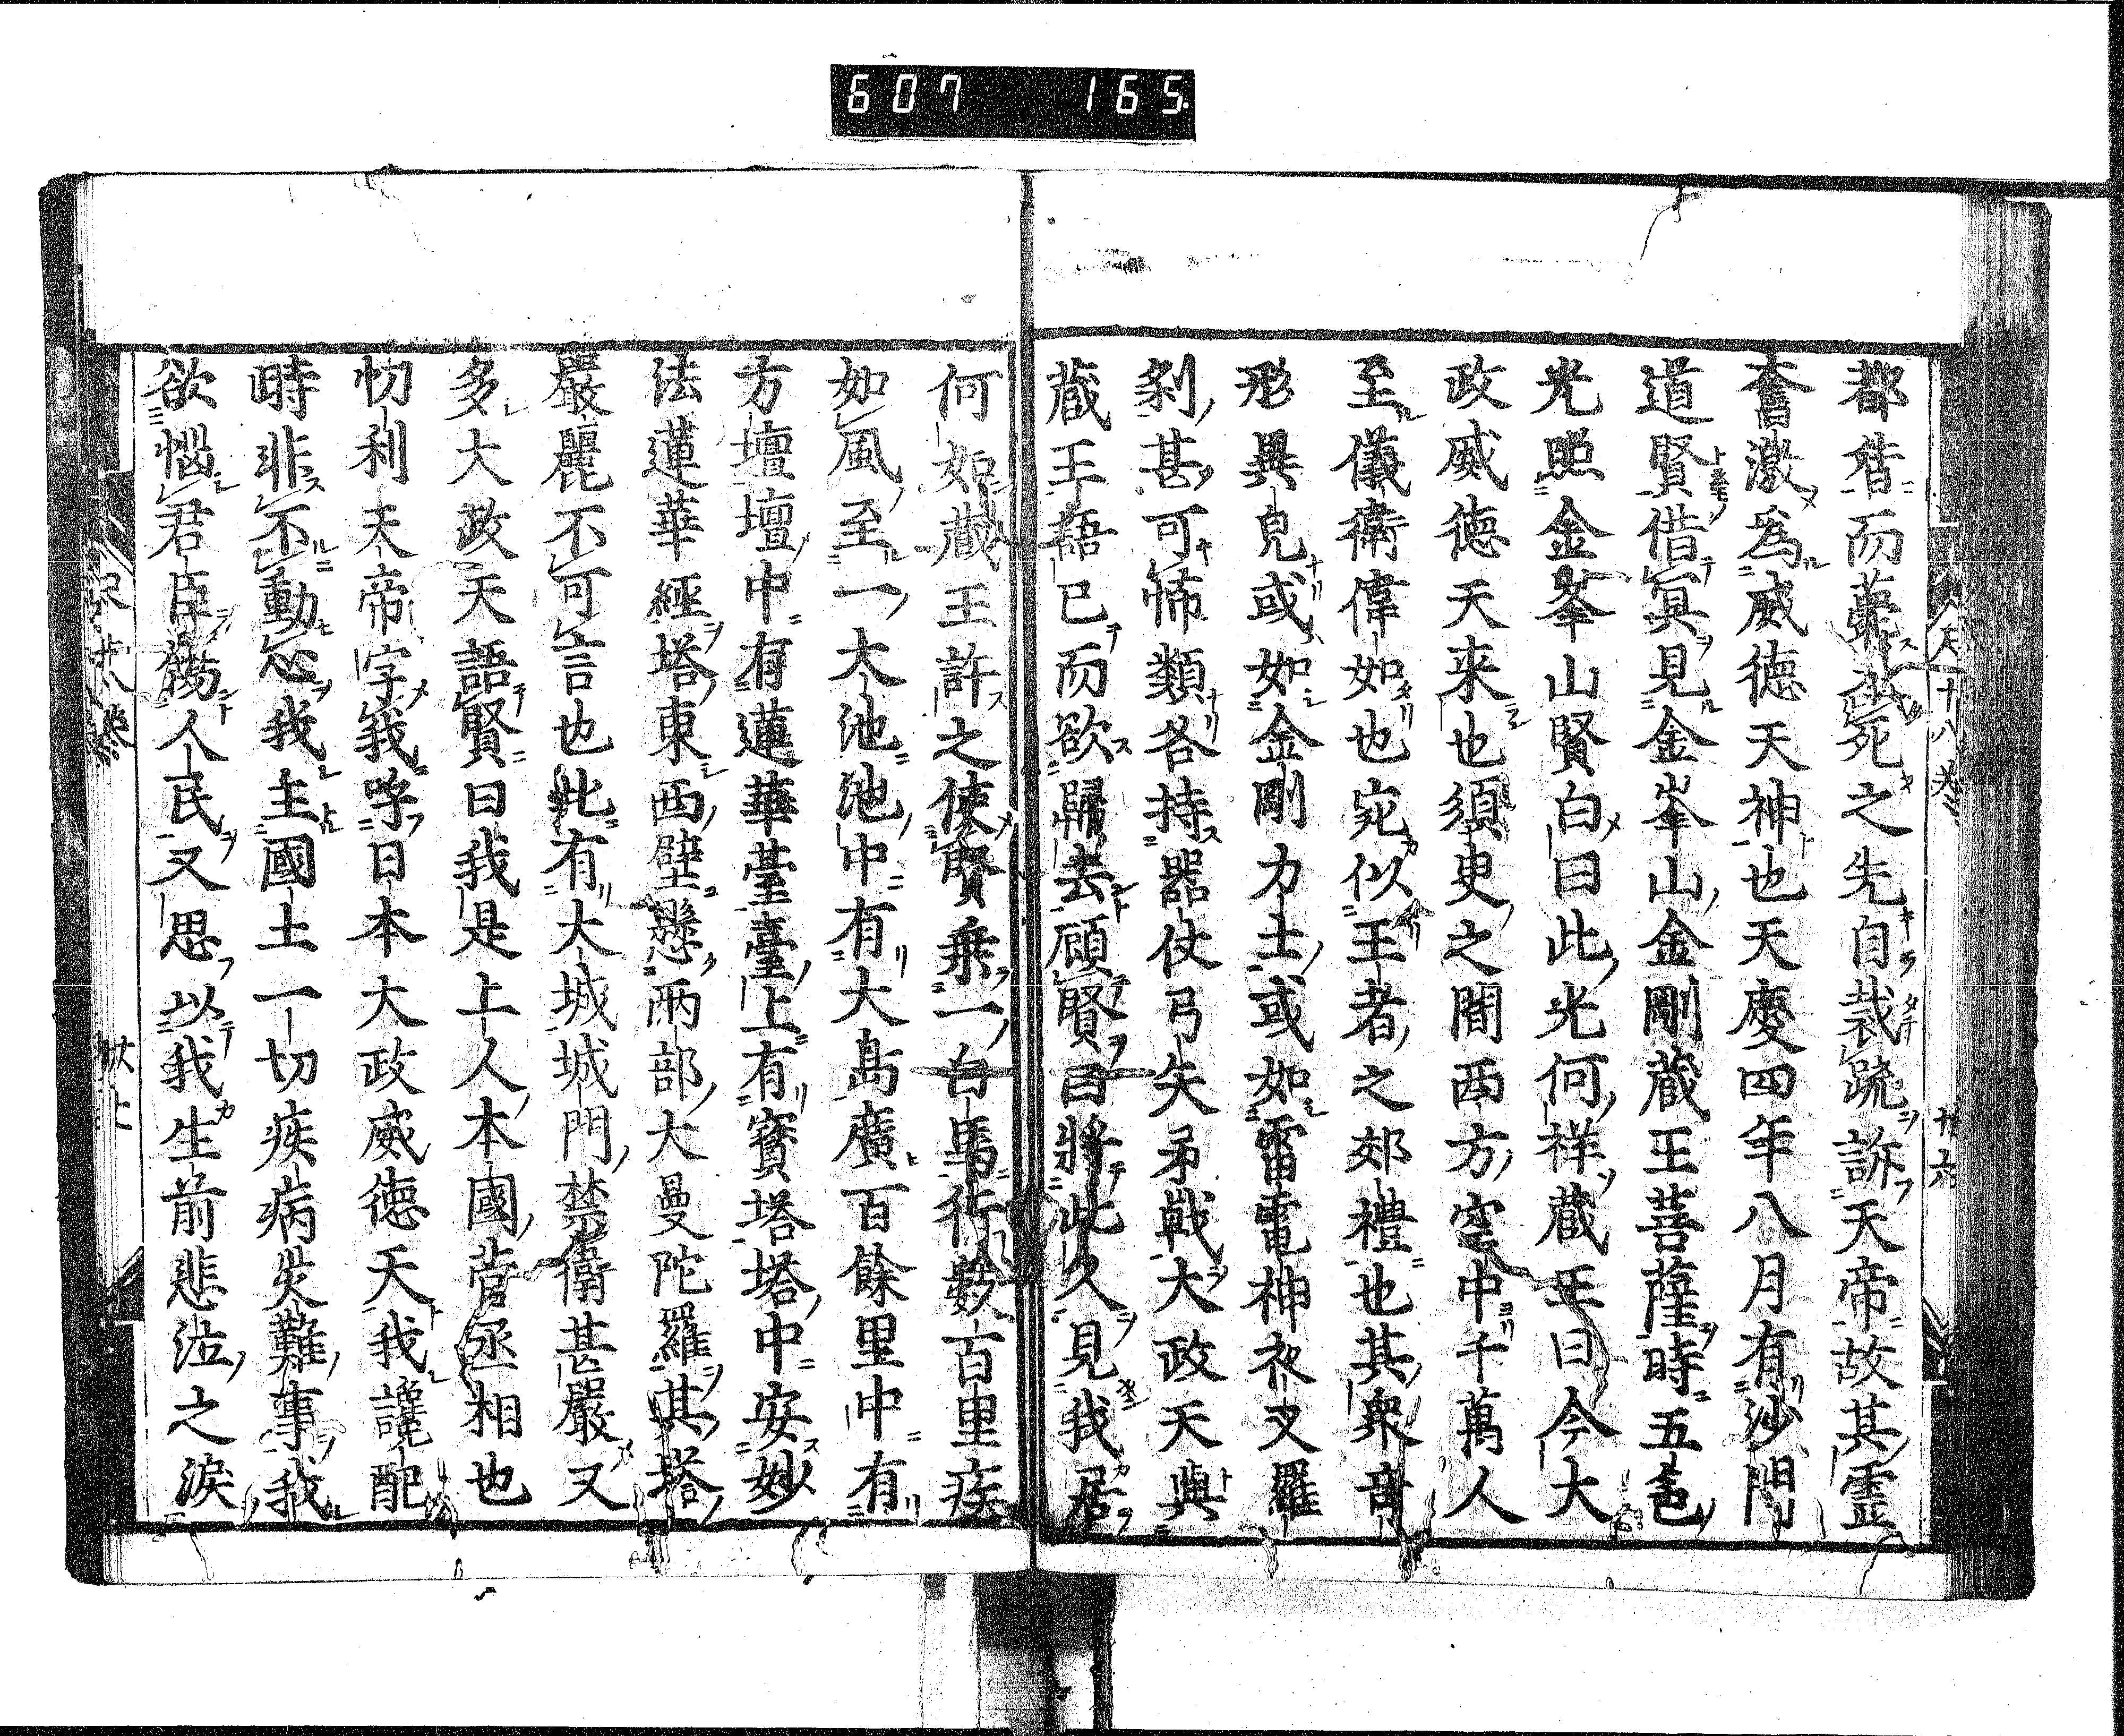 607 165
都督而薨
死之先自裁疏訴天帝故其霊
奮激為威徳天神也天慶四年八月有沙門
道賢借冥見金峯山金剛蔵王菩薩時五色
光照金峯山賢白曰此光何祥蔵王曰今大
政威徳天来也須臾之間西方空中千萬人
至儀衛偉如也宛似王者之郊禮也其衆竒
形異皃或如金剛力士或如雷電神夜叉羅
刹甚可怖類各持器仗弓矢矛戟大政天與
蔵王語已而欲歸去顧賢曰將此人見我居
何如蔵王許之使賢乗一白馬行數百里疾
如風至一大池池中有大島廣百餘里中有
方壇壇中有蓮華臺臺上有寳塔塔中安妙
法蓮華經塔東西壁懸兩部大曼陀羅其塔
嚴麗不可言也此有大城城門禁衛甚嚴又
多大政天語賢曰我是上人本國菅丞相也
忉利天帝字我呼日本大政威徳天我讒配
時非不動心我主國土一切疾病災難事我
欲惱君臣傷人民又思以我生前悲泣之涙